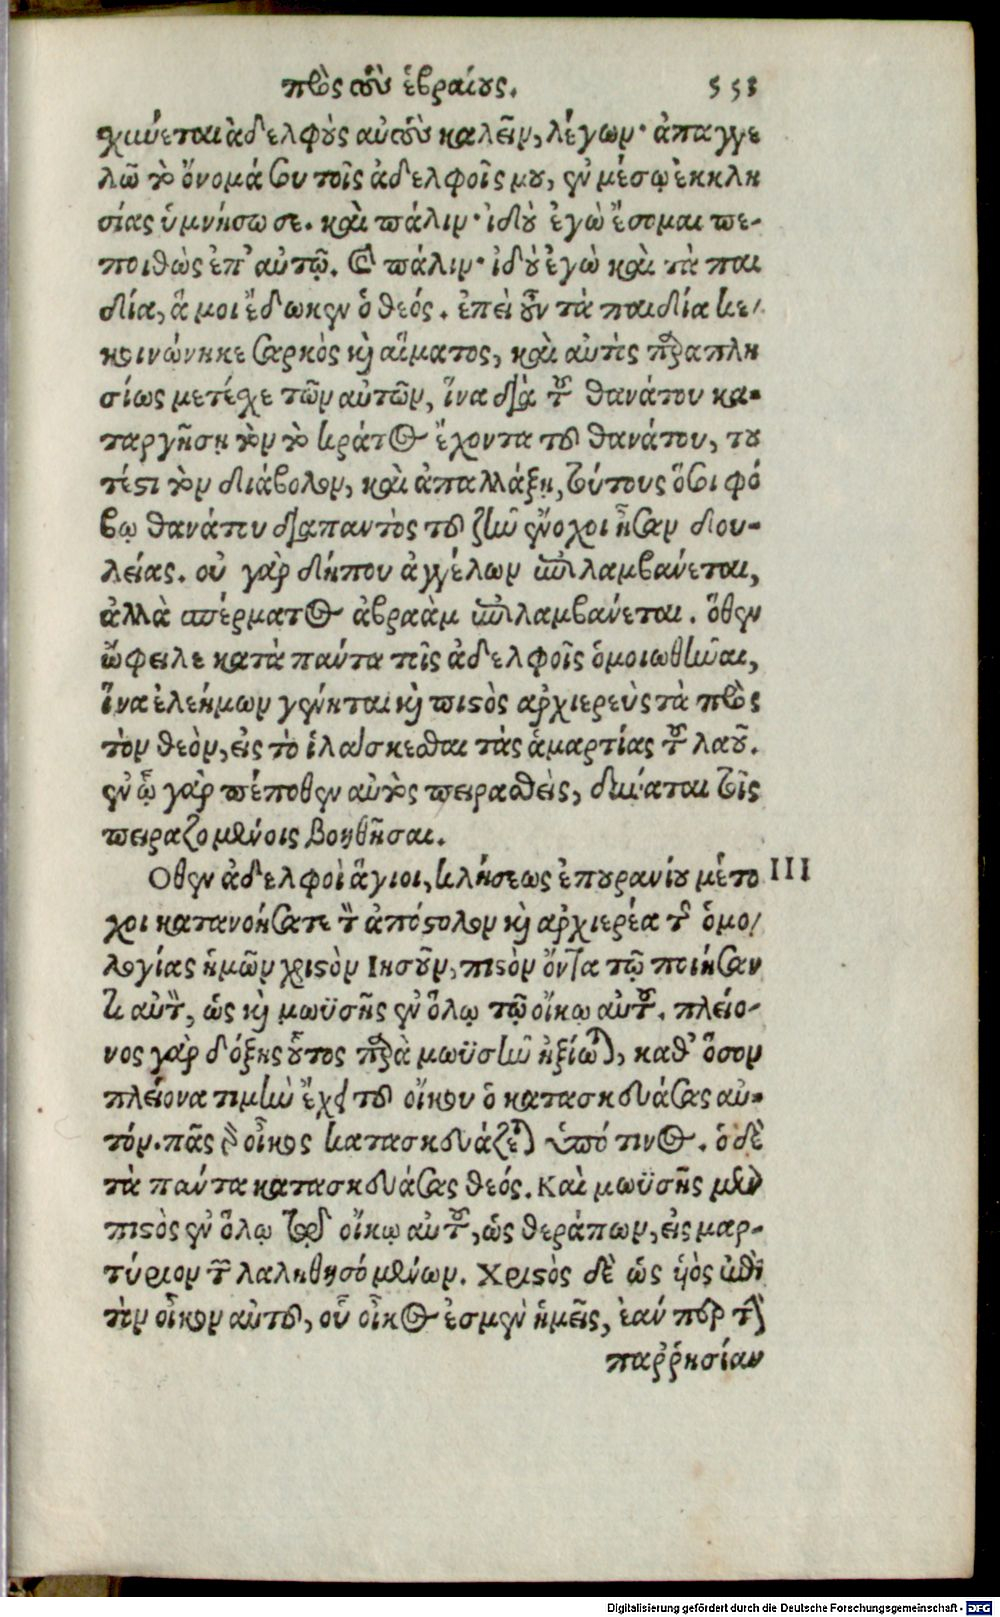 πρὸς τοὺς ἑβραίους. 553
χύνεται ἀδελφοὺς αὐτοὺς καλεῖν, λέγων· ἀπαγγε
λῶ τὸ ὄνομά σου τοῖς ἀδελφοῖς μου, ἐν μέσῳ ἐκκλη
σίας ὑμνήσω σε. καὶ πάλιν· ἰδοὺ ἐγὼ ἔσομαι πε-
ποιθὼς ἐπ' αὐτῷ. καὶ πάλιν· ἰδοὺ ἐγὼ καὶ τὰ παι
δία, ἅ μοι ἔδωκεν ὁ θεός. ἐπεὶ οὖν τὰ παιδία κε/
κοινώνηκε σαρκὸς καὶ αἵματος, καὶ αὐτὸς παραπλη
σίως μετέσχε τῶν αὐτῶν, ἵνα διὰ τοῦ θανάτου κα-
ταργήσῃ τὸν τὸ κράτος ἔχοντα τοῦ θανάτου, του
τέστι τὸν διάβολον, καὶ ἀπαλλάξῃ, τούτους ὅσοι φό
βῳ θανάτου διαπαντὸς τοῦ ζῆν ἔνοχοι ἦσαν δου-
λείας. οὐ γὰρ δήπου ἀγγέλων ἐπιλαμβάνεται,
ἀλλὰ σπέρματος ἀβραὰμ ἐπιλαμβάνεται. ὅθεν
ὤφειλε κατὰ πάντα τοῖς ἀδελφοῖς ὁμοιωθῆναι,
ἵνα ἐλεήμων γένηται καὶ πιστὸς ἀρχιερεὺς τὰ πρὸς
τὸν θεὸν, εἰς τὸ ἱλάσκεσθαι τὰς ἁμαρτίας τοῦ λαοῦ.
ἐν ᾧ γὰρ πέπονθεν αὐτὸς πειρασθεὶς, δύναται τοῖς
πειραζομένοις βοηθῆσαι.
Οθεν ἀδελφοὶ ἅγιοι, κλήσεως ἐπουρανίου μέτο III
χοι κατανοήσατε τὸν ἀπόστολον καὶ ἀρχιερέα τῆς ὁμο/
λογίας ἡμῶν χριστὸν Ιησοῦν, πιστὸν ὄντα τῷ ποιήσαν
τι αὐτὸν, ὡς καὶ μωϋσῆς ἐν ὅλῳ τῷ οἴκῳ αὐτοῦ. πλείο-
νος γὰρ δόξης οὗτος παρὰ μωϋσῆν ἠξίωται, καθ' ὅσον
πλείονα τιμὴν ἔχει τοῦ οἴκου ὁ κατασκευάσας αὐ-
τόν. πᾶς γὰρ οἶκος κατασκευάζεται ὑπό τινος. ὁ δὲ
τὰ πάντα κατασκευάσας θεός. Καὶ μωϋσῆς μὲν
πιστὸς ἐν ὅλῳ τῷ οἴκῳ αὐτοῦ, ὡς θεράπων, εἰς μαρ-
τύριον τῶν λαληθησομένων. Χριστὸς δὲ ὡς υἱὸς ἐπὶ
τὸν οἶκον αὐτοῦ, οὗ οἶκος ἐσμεν ἡμεῖς, ἐάν περ τὴν
παῤῥησίαν
Digitalisierung gefördert durch die Deutsche Forschungsgemeinschaft - DFG